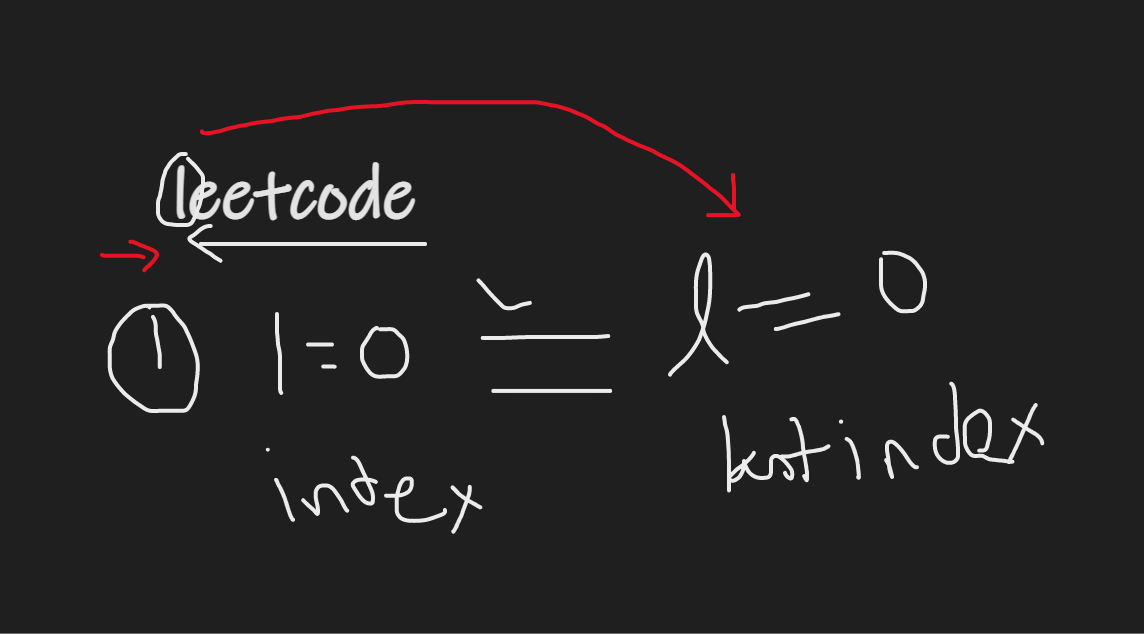 leetcode
① l=0 = l=0
index lastindex